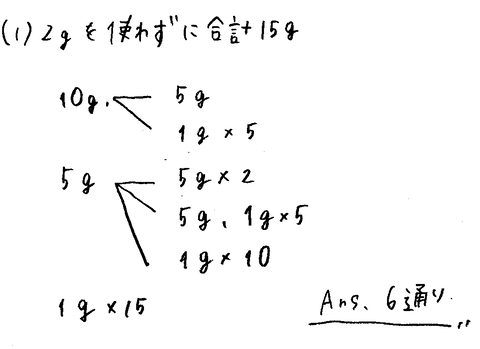 (1) 2g を使わずに合計15g
10g. 5g
1g × 5
5g 5g × 2
5g、1g×5
1g × 10
1g ×15
Ans、6通り.